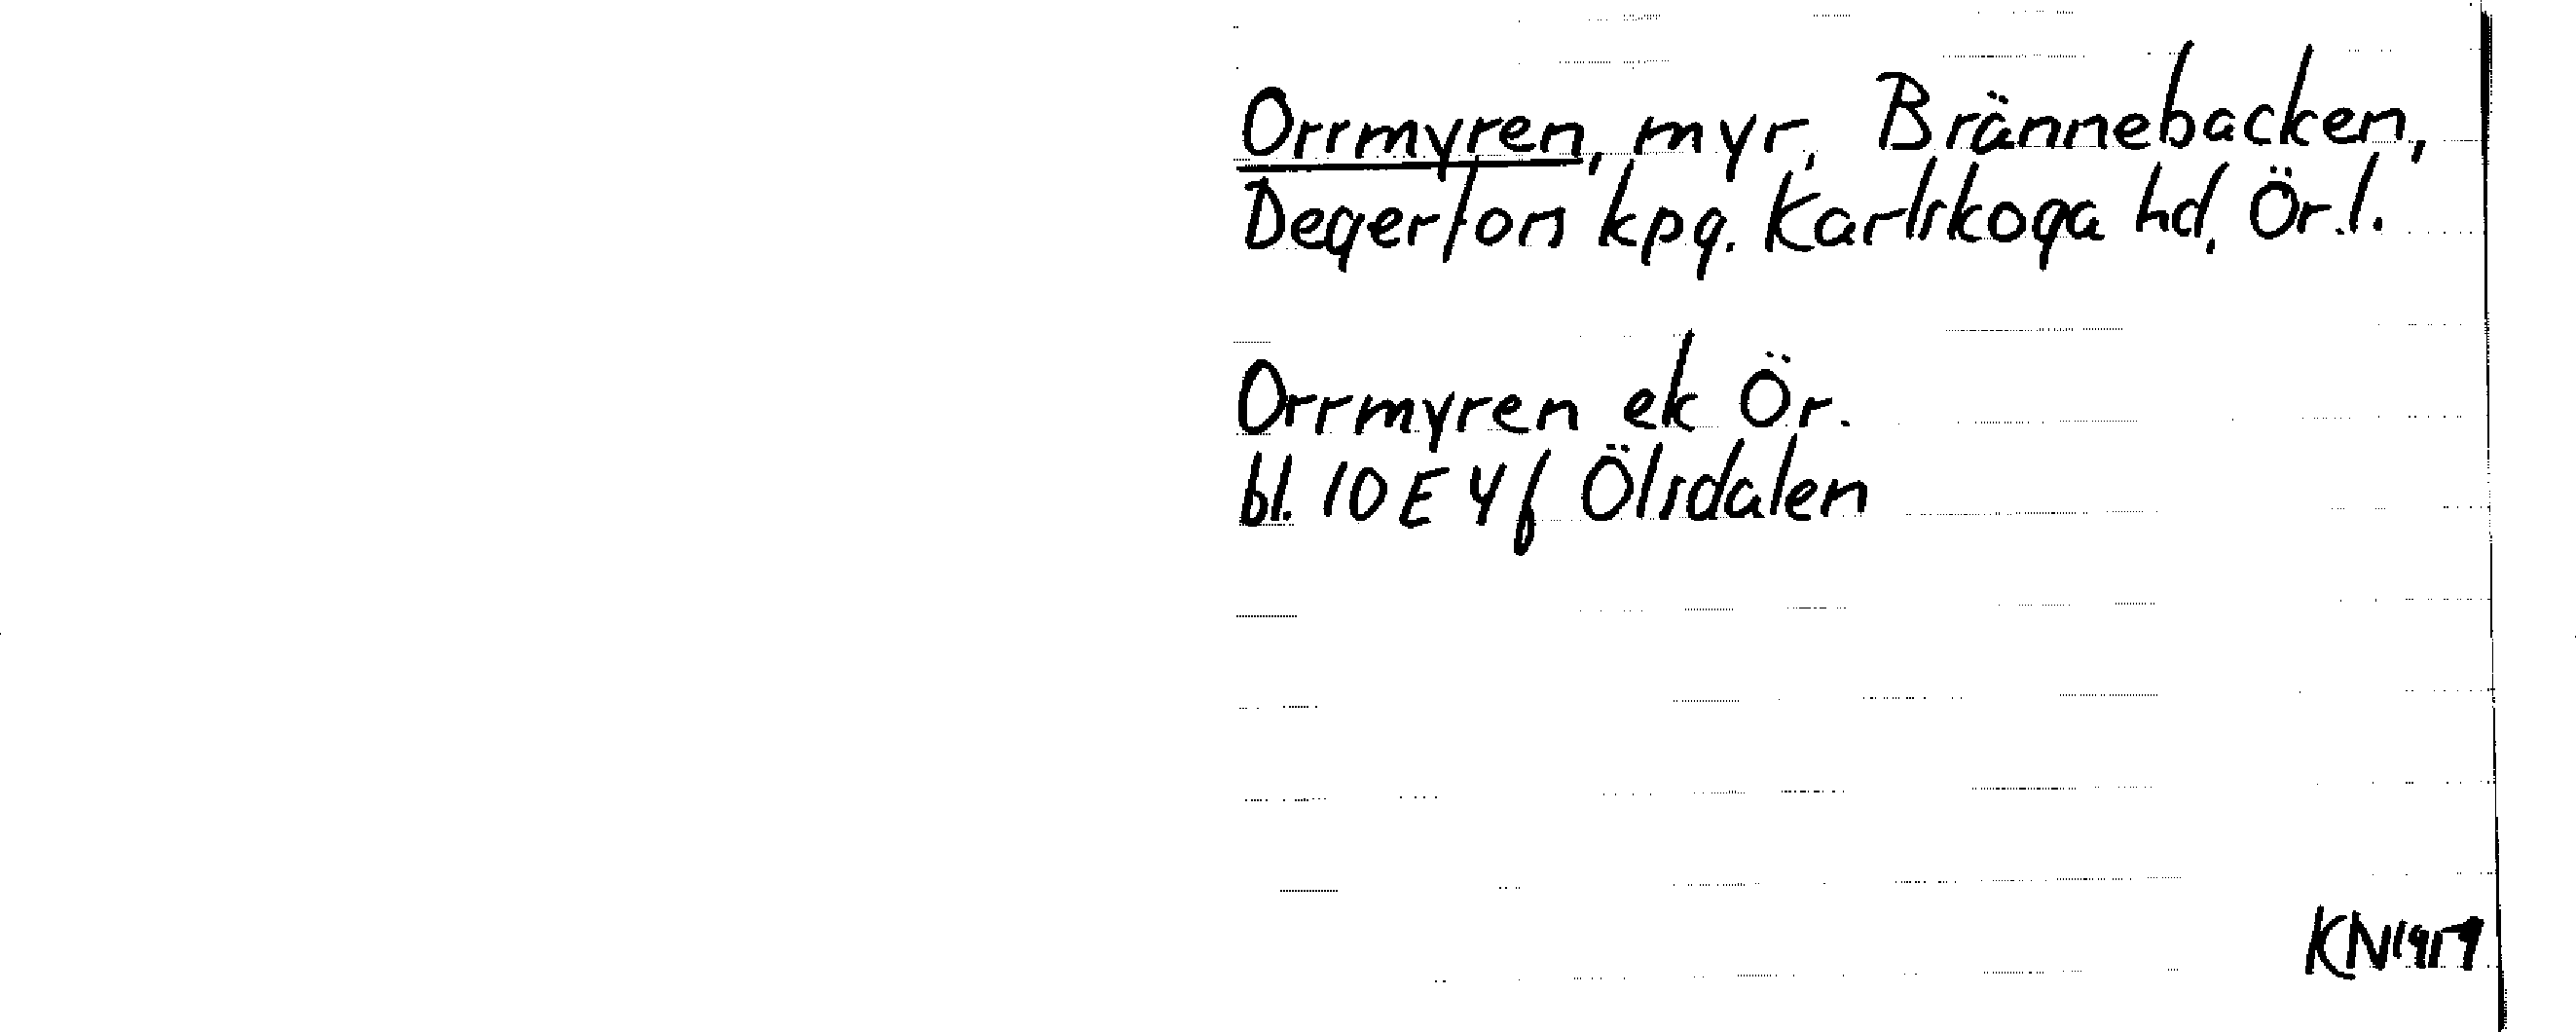 Orrmyren, myr, Brännebacken,
Degerfors kpg. Karlskoga hd, Ör.l.
Orrmyren ek Ör.
bl. 10 E 4 f Ölsdalen